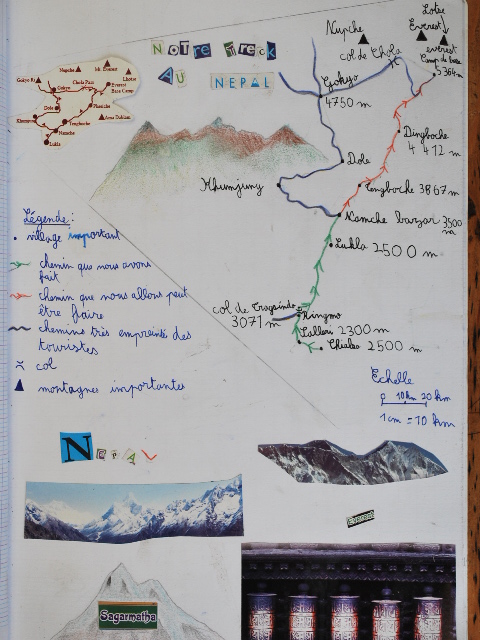 NOTRE TRECK
AU NEPAL
Nuptse
Mt. Everest
Lhotse
Gokyo Ri
Gokyo
Chola Pass
Everest
Base Camp
Dole
Pheriche
Khumjung
Tengboche
Ama Dablam
Namche
Lukla
Nupche
Lotse
Everest
col de Chola
everest
Camp de base
5364m
Gokyo
4750 m
Dingboche
4 412 m
Dole
Khumjung
Tengboche 3867m
Namche bazar 3500
m
Lukla 2500 m
col de Tragsindo
3071 m
Ringmo
Salleri 2300m
Chialsa 2500 m
Légende:
village important
chemin que nous avons
fait
chemin que nous allons peut
être faire
chemins très empreintés des
touristes
col
montagnes importantes
Echelle
0 10km 20 km
1cm = 10 km
NEPAL
Everest
Sagarmatha